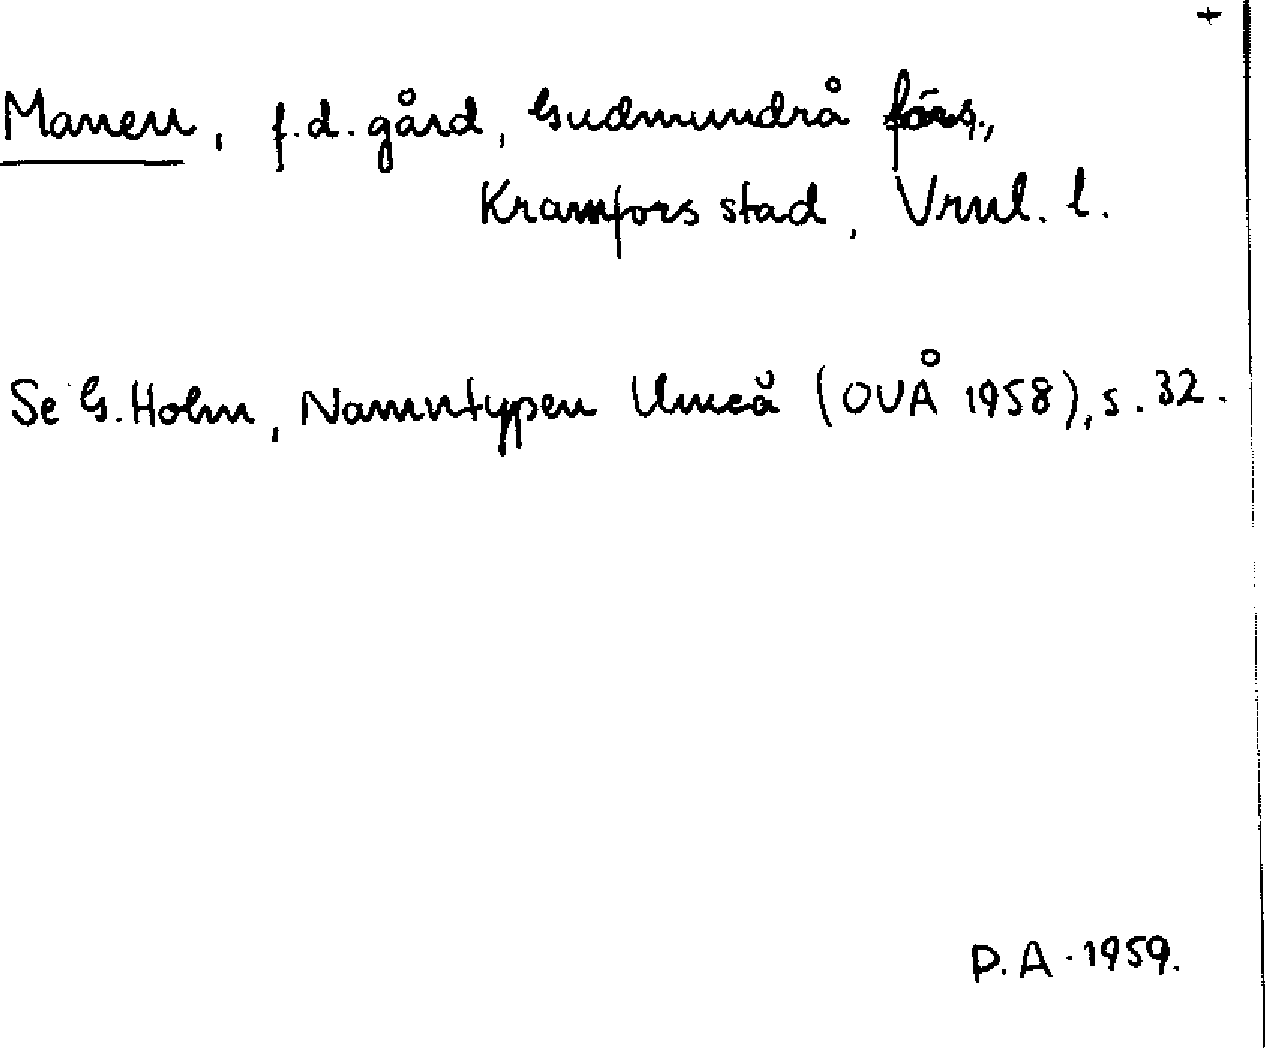 +
Manen, f.d. gård, Gudmundrå förs.,
Kramfors stad, Vrnl. l.
Se G. Holm, Namntypen Umeå (OUÅ 1958), s. 32.
P.A. 1959.